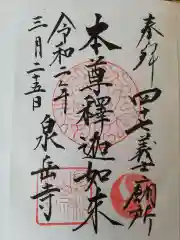 奉拝 四十七義士願所
本尊釋迦如来
令和二年
三月二十五日
泉岳寺